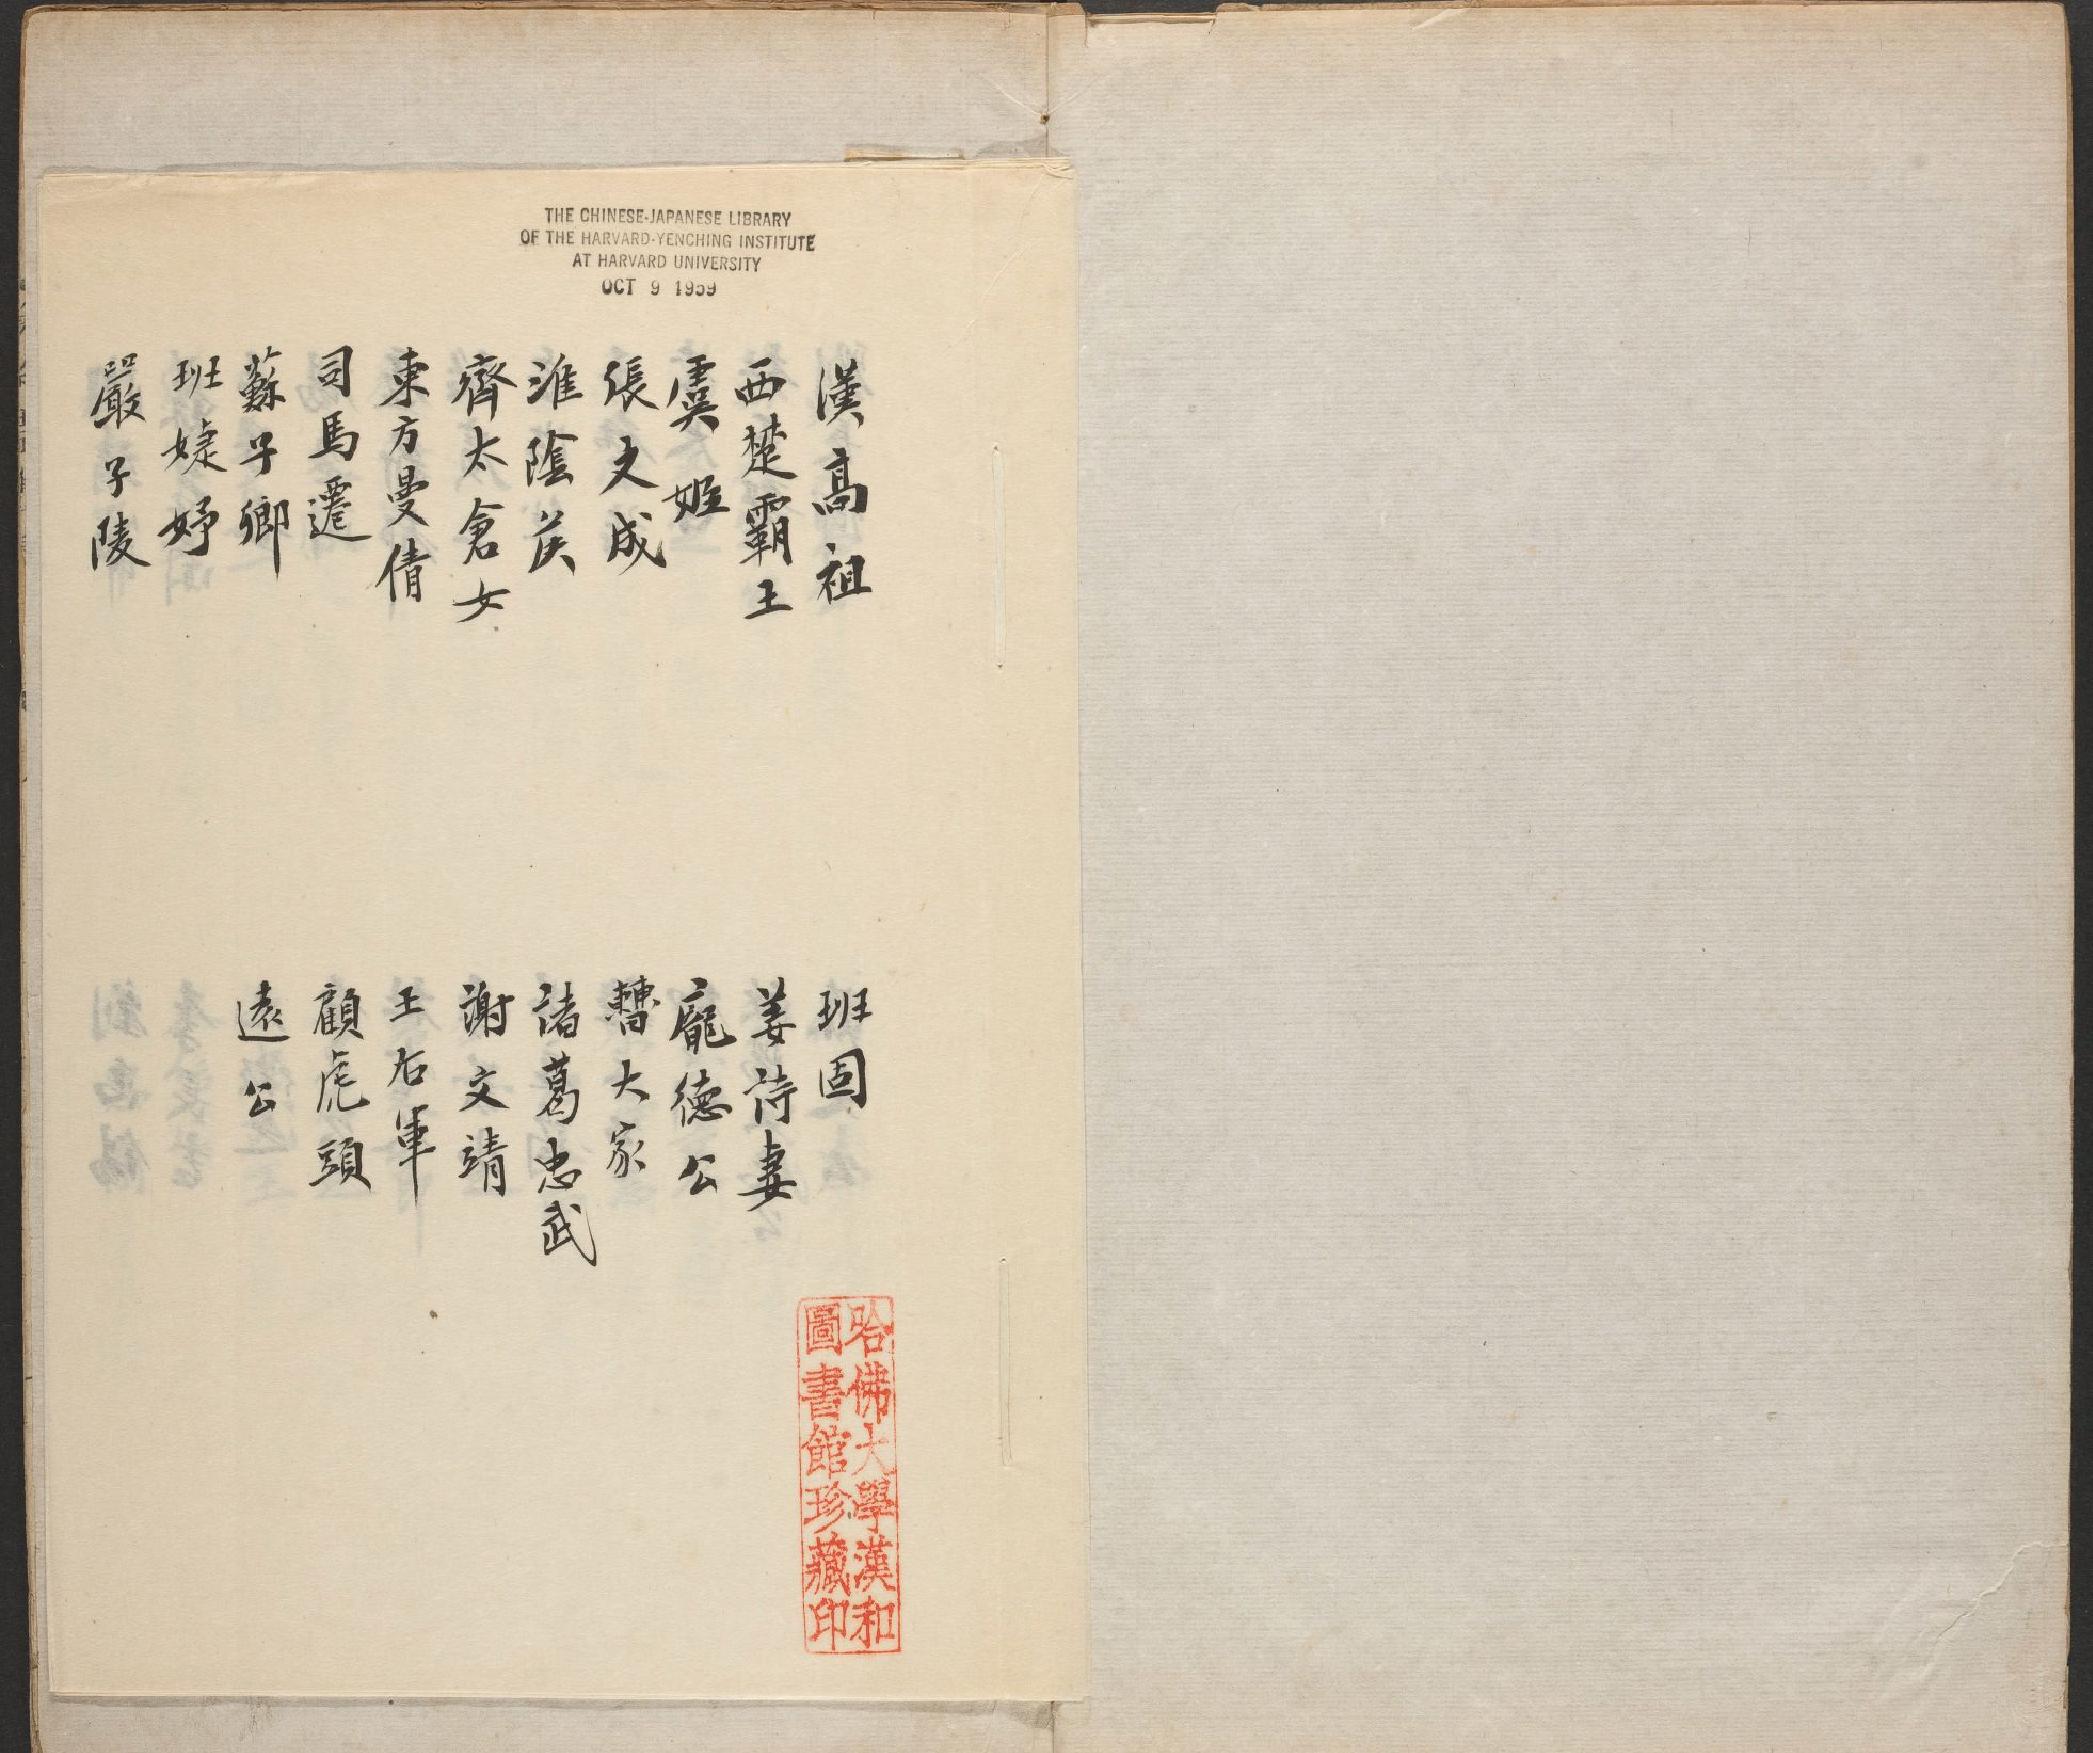 THE CHINESE-JAPANESE LIBRARY
OF THE HARVARD-YENCHING INSTITUTE
AT HARVARD UNIVERSITY
OCT 9 1959
漢高祖
西楚霸王
虞姬
張文成
淮陰侯
齊太倉女
東方曼倩
司馬遷
蘇子卿
班婕妤
嚴子陵
班固
姜詩妻
龐德公
曹大家
諸葛忠武
謝文靖
王右軍
顧虎頭
遠公
哈佛大學漢和
圖書館珍藏印